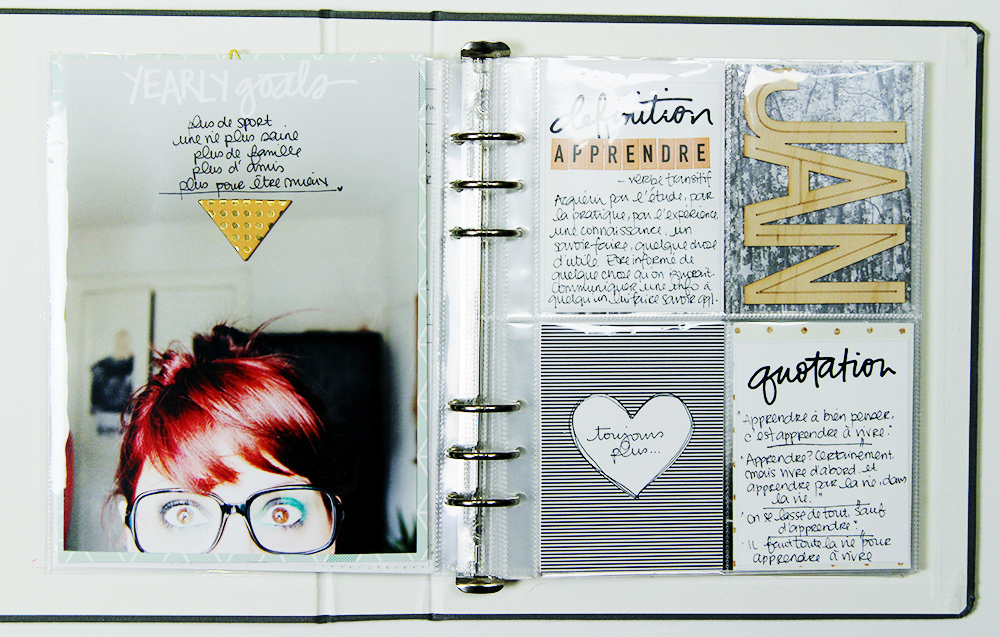 YEARLY goals
plus de sport
une vie plus saine
plus de famille
plus d'amis
plus pour être mieux
definition
APPRENDRE
- verbe transitif
Acquérir par l'étude, par
la pratique, par l'expérience
une connaissance, un
savoir-faire, quelque chose
d'utile. Etre informé de
quelque chose qu'on ignorait.
Communiquer une info à
quelqu'un, lui faire savoir qql.
JAN
toujours
plus...
quotation
"Apprendre à bien penser,
c'est apprendre à vivre."
"Apprendre? Certainement,
mais vivre d'abord et
apprendre par la vie, dans
la vie."
"On se lasse de tout sauf
d'apprendre".
"Il faut toute la vie pour
apprendre à vivre